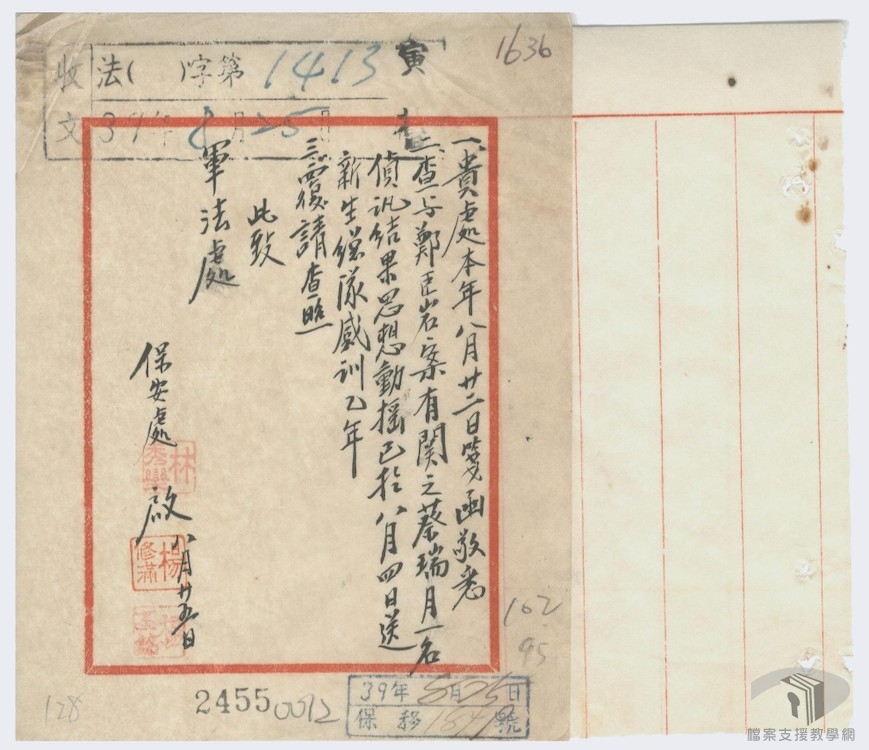 1636
收文 法( )字第1413
39年8月25日
寅
一、貴處本年八月廿二日箋函敬悉
二、查与鄭臣岩案有關之蔡瑞月一名
偵訊結果思想動搖已於八月四日送
新生總隊感訓乙年
三、覆請查照
此致
軍法處
保安處 啟 八月廿五日
林秀欒
楊修滿
162
95
128
2455
0092
39年8月25日
保 移 號
檔案支援教學網